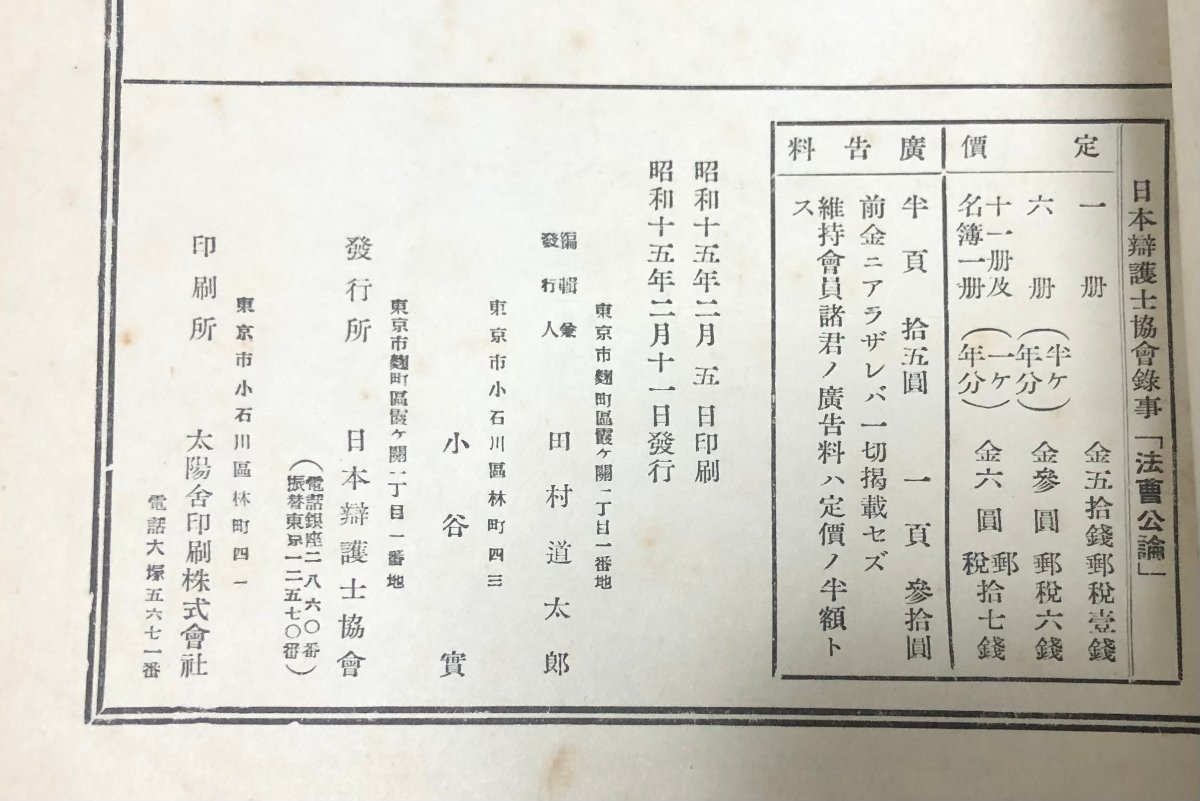 日本辯護士協會錄事「法曹公論」
定價
一册 金五拾錢 郵稅壹錢
六册（半ケ年分） 金參圓 郵稅六錢
十一册及名簿一册（一ケ年分） 金六圓 郵稅拾七錢
廣告料
半頁 拾五圓 一頁 參拾圓
前金ニアラザレバ一切揭載セズ
維持會員諸君ノ廣告料ハ定價ノ半額ト
ス
昭和十五年二月五日印刷
昭和十五年二月十一日發行
東京市麴町區霞ケ關一丁目一番地
編輯兼發行人 田村道太郎
東京市小石川區林町四三
小谷實
東京市麴町區霞ケ關一丁目一番地
發行所 日本辯護士協會
（電話銀座二八六〇番
振替東京一二五七〇番）
東京市小石川區林町四一
印刷所 太陽舍印刷株式會社
電話大塚五六七一番